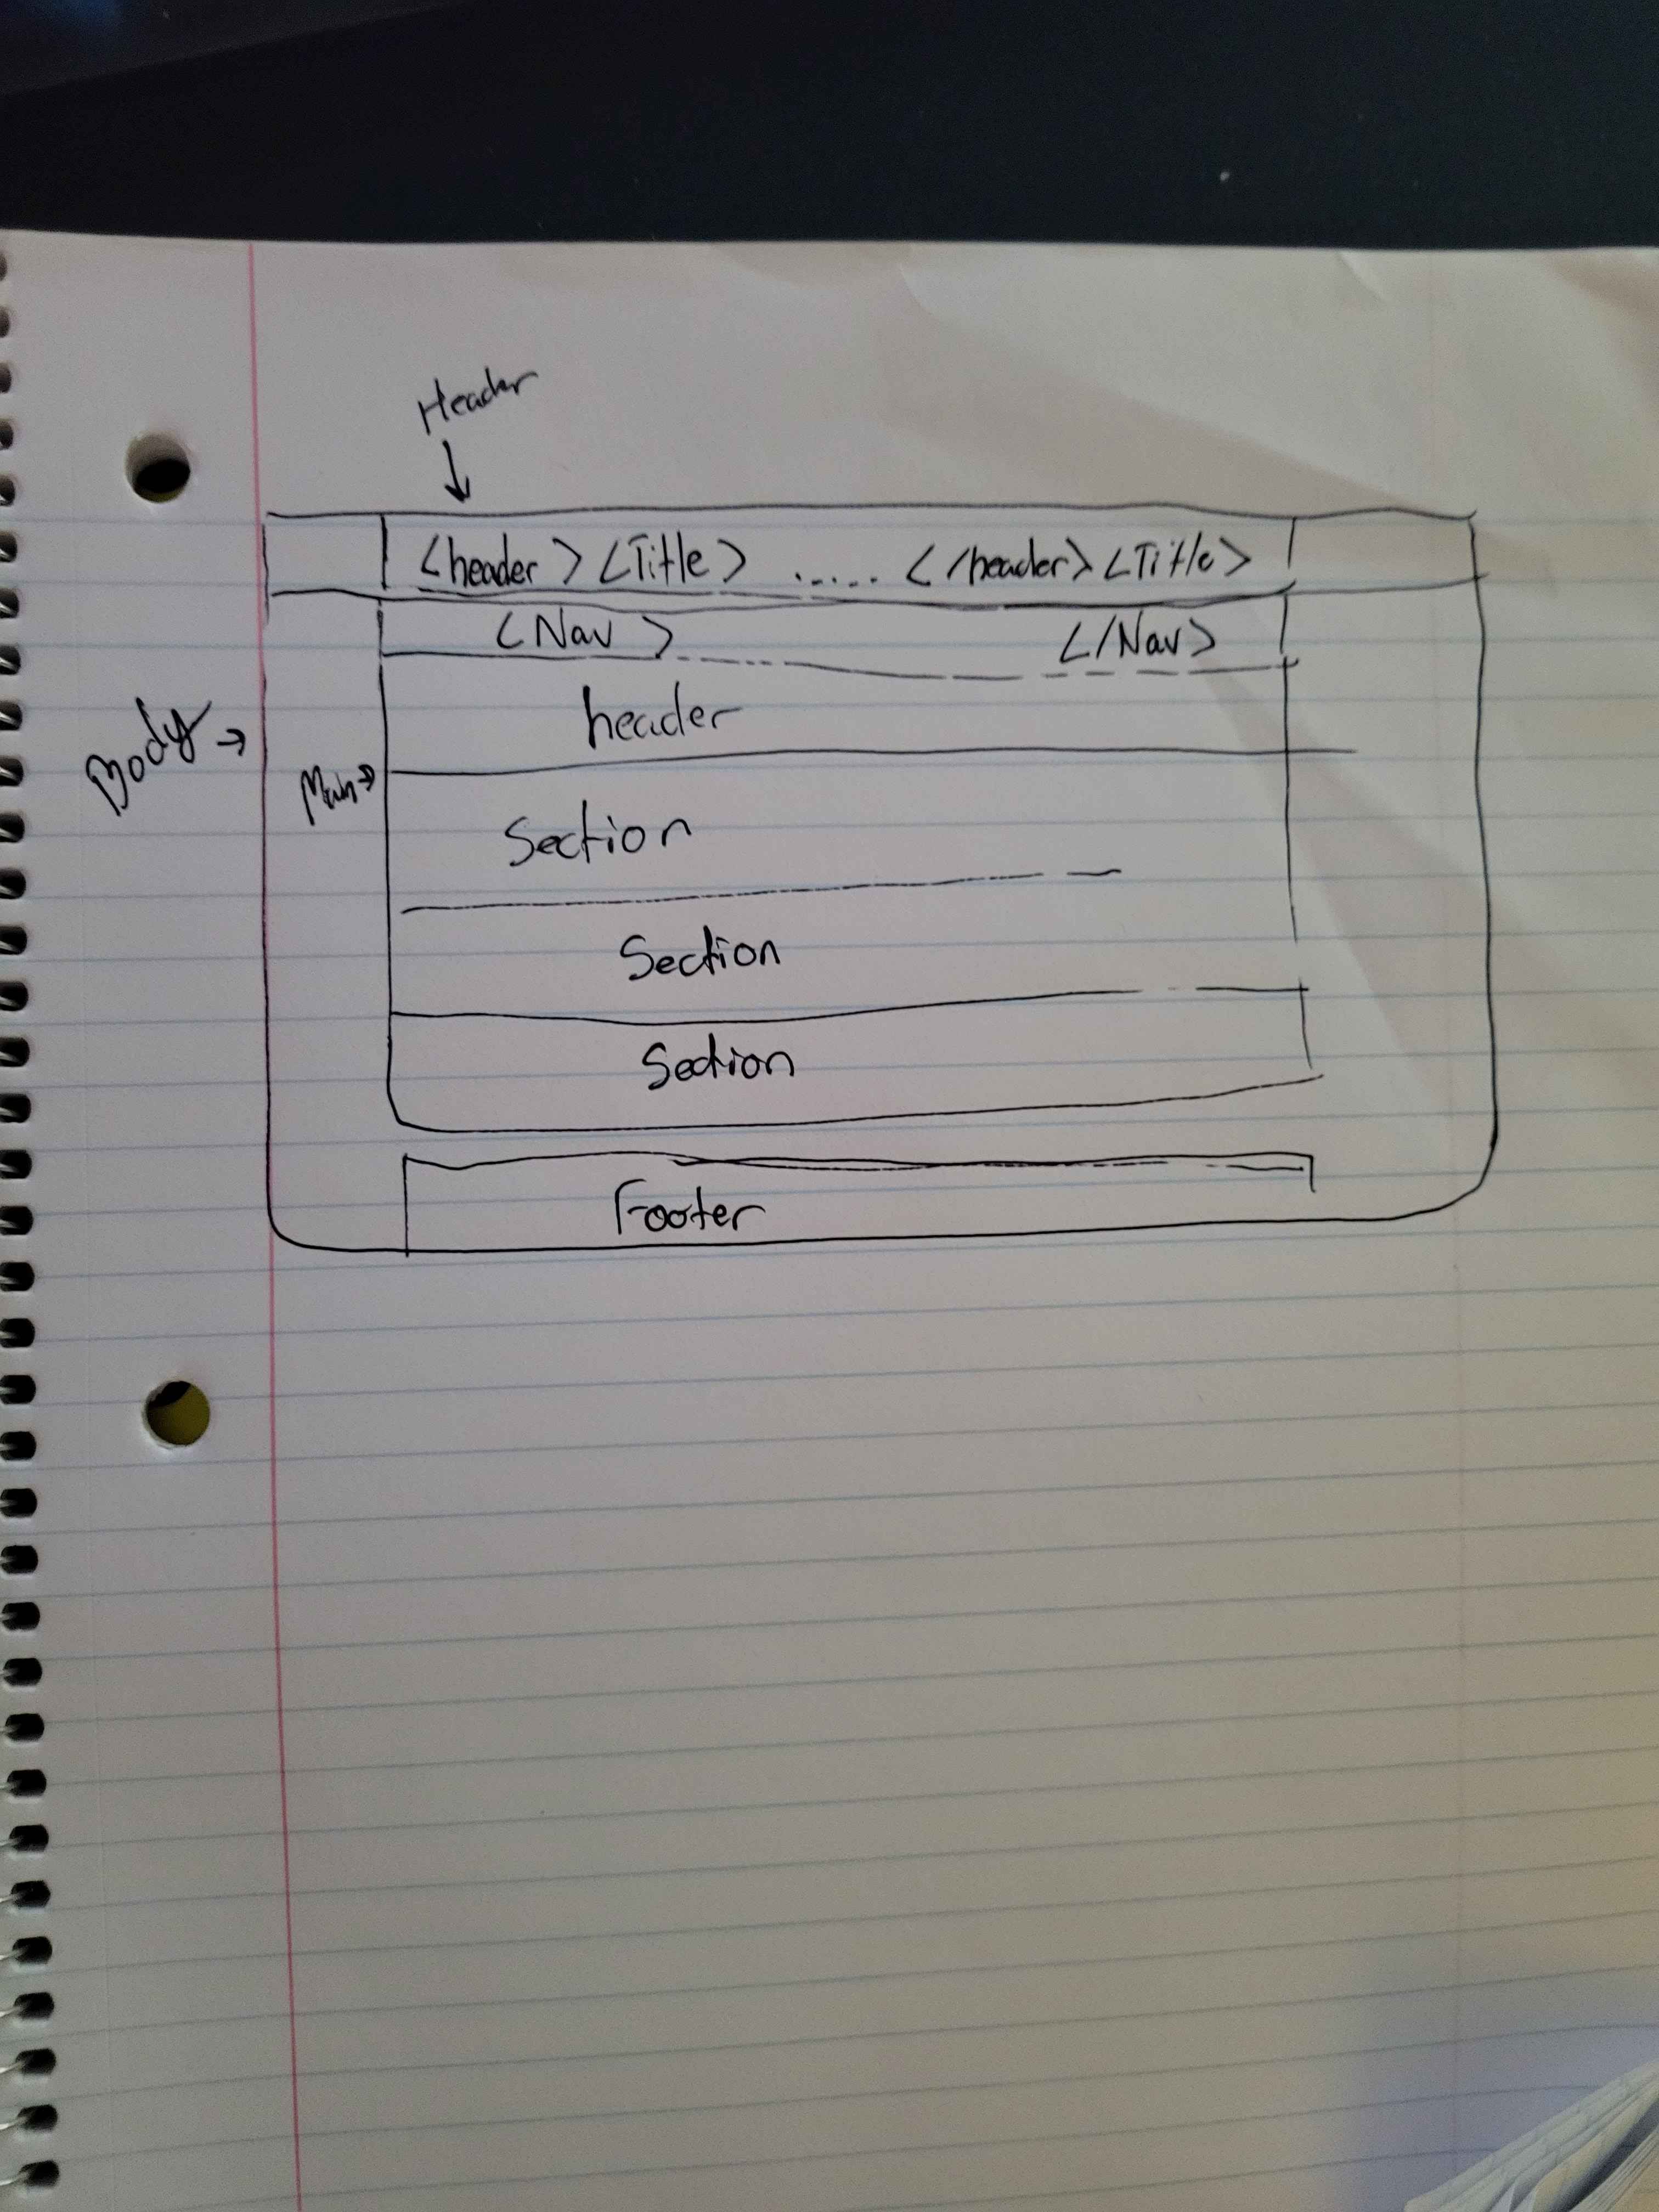 Header
<header> <Title> ..... </header> <Title>
<Nav> </Nav>
header
Body →
Main →
Section
Section
Section
Footer